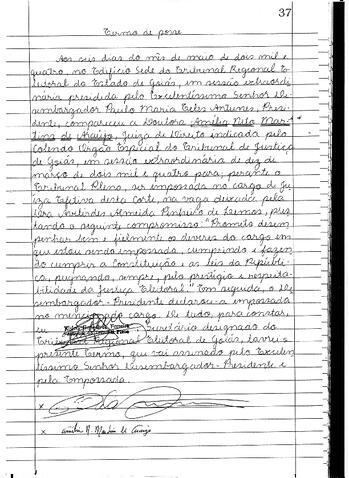 37
Termo de posse
Aos seis dias do mês de maio de dois mil e
quatro, no Edifício Sede do Tribunal Regional E-
leitoral do Estado de Goiás, em sessão extraordi-
nária presidida pelo Excelentíssimo Senhor De-
sembargador Paulo Maria Teles Antunes, Presi-
dente, compareceu a Doutora Amélia Neto Mar-
tins de Araújo, Juíza de Direito indicada pelo
Colendo Órgão Especial do Tribunal de Justiça
de Goiás, em sessão extraordinária de dez de
março de dois mil e quatro para, perante o
Tribunal Pleno, ser empossada no cargo de Ju-
íza Efetiva desta Corte, na vaga deixada pela
Almeida Pinheiro de Lemos, pres-
tando o seguinte compromisso: "Prometo desem-
penhar bem e fielmente os deveres do cargo em
que estou sendo empossada, cumprindo e fazen-
do cumprir a Constituição e as leis da Repúbli-
ca, pugnando, sempre, pelo prestígio e respeita-
bilidade da Justiça Eleitoral." Em seguida, o De-
sembargador-Presidente declarou a empossada
no mencionado cargo. De tudo, para constar,
eu Secretário designado do
Tribunal Regional Eleitoral de Goiás, lavrei o
presente Termo, que vai assinado pelo Excelen-
tíssimo Senhor Desembargador-Presidente e
pela Empossada.
x
x Amélia N. Martins de Araújo